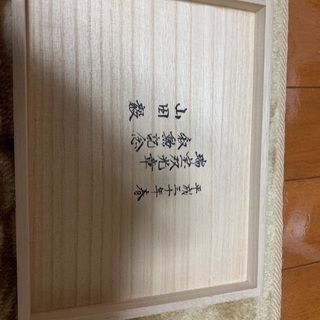 平成三十年 春
瑞宝双光章
叙勲記念
山田 毅